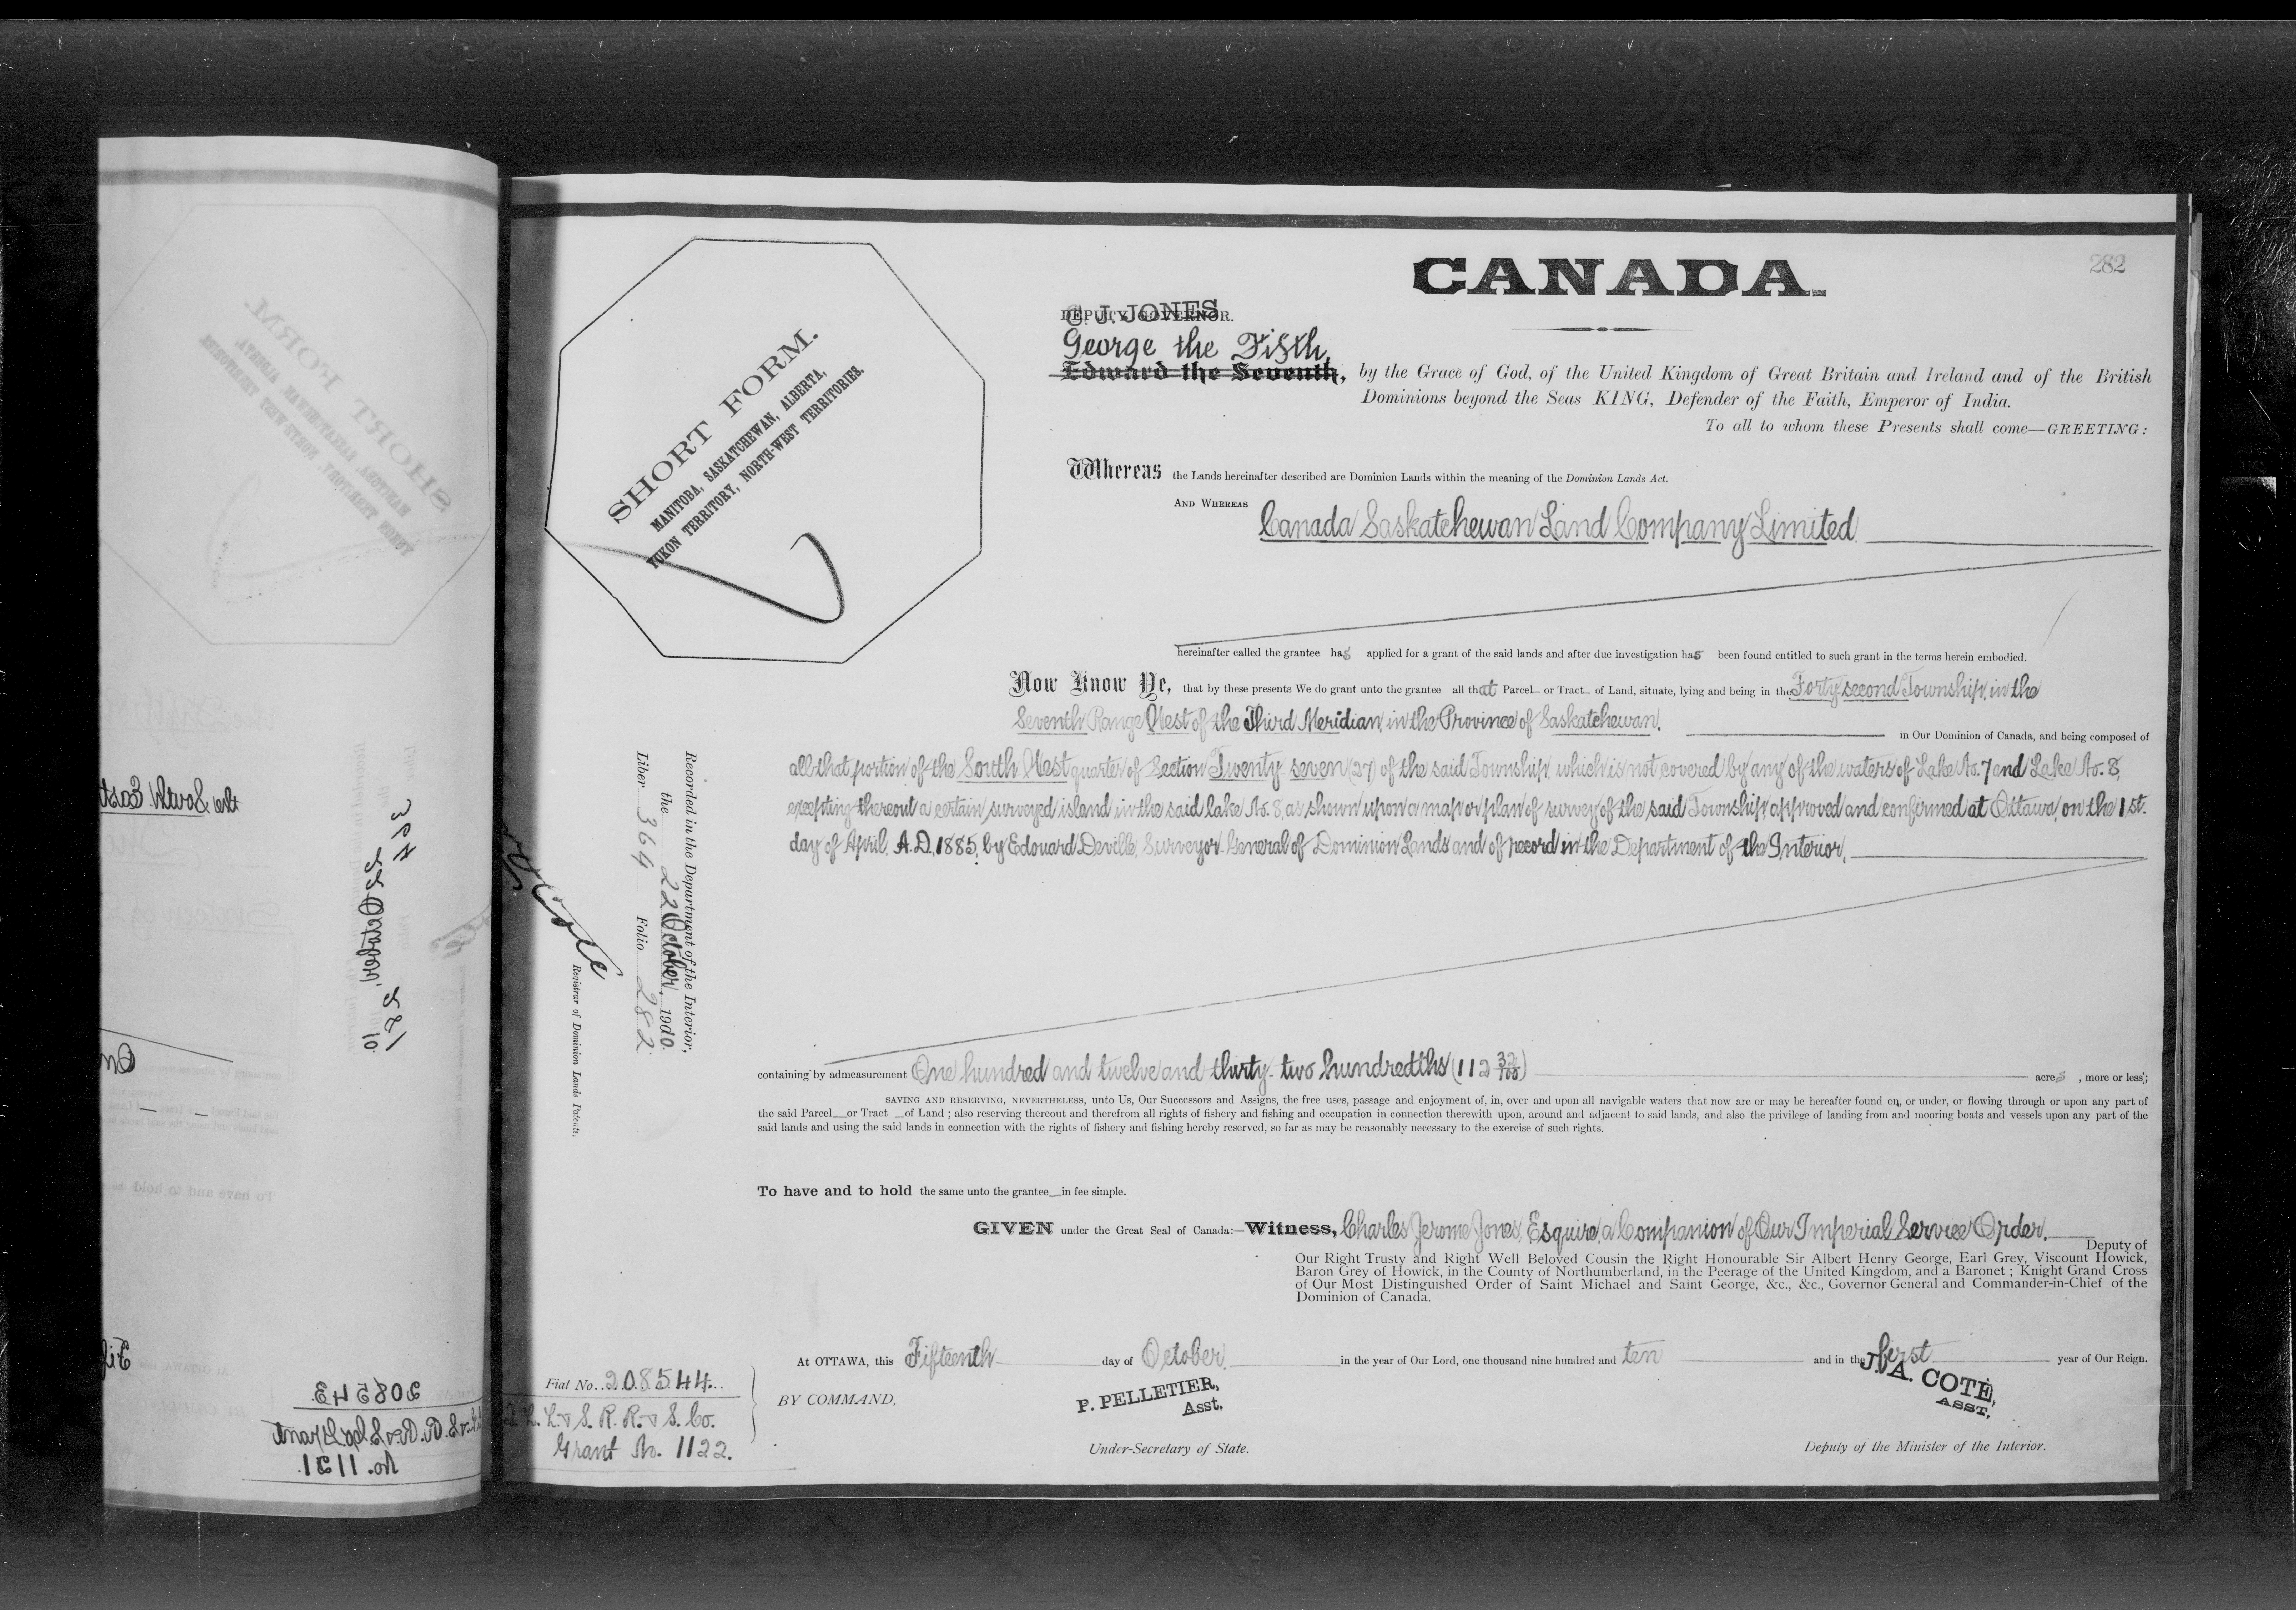 CANADA.
282
C. J. JONES
DEPUTY GOVERNOR.
George the Fifth,
Edward the Seventh, by the Grace of God, of the United Kingdom of Great Britain and Ireland and of the British
Dominions beyond the Seas KING, Defender of the Faith, Emperor of India.
To all to whom these Presents shall come—GREETING:
SHORT FORM.
MANITOBA, SASKATCHEWAN, ALBERTA,
YUKON TERRITORY, NORTH-WEST TERRITORIES.
Whereas the Lands hereinafter described are Dominion Lands within the meaning of the Dominion Lands Act.
AND WHEREAS Canada Saskatchewan Land Company Limited
hereinafter called the grantee has applied for a grant of the said lands and after due investigation has been found entitled to such grant in the terms herein embodied.
Now Know Ye, that by these presents We do grant unto the grantee all that Parcel or Tract of Land, situate, lying and being in the Forty second Township, in the
Seventh Range West of the Third Meridian, in the Province of Saskatchewan.
in Our Dominion of Canada, and being composed of
all that portion of the South West quarter of Section Twenty seven (27) of the said Township, which is not covered by any of the waters of Lake No. 7 and Lake No. 8,
excepting thereout a certain surveyed island in the said lake No. 8, as shown upon a map or plan of survey of the said Township, approved and confirmed at Ottawa, on the 1st.
day of April, A.D. 1885, by Edouard Deville, Surveyor General of Dominion Lands and of record in the Department of the Interior,
Recorded in the Department of the Interior,
the 22 October, 1910.
Liber 364 Folio 282
Registrar of Dominion Lands Patents.
containing by admeasurement One hundred and twelve and thirty-two hundredths (112 32/100) acres, more or less;
SAVING AND RESERVING, NEVERTHELESS, unto Us, Our Successors and Assigns, the free uses, passage and enjoyment of, in, over and upon all navigable waters that now are or may be hereafter found on, or under, or flowing through or upon any part of
the said Parcel or Tract of Land; also reserving thereout and therefrom all rights of fishery and fishing and occupation in connection therewith upon, around and adjacent to said lands, and also the privilege of landing from and mooring boats and vessels upon any part of the
said lands and using the said lands in connection with the rights of fishery and fishing hereby reserved, so far as may be reasonably necessary to the exercise of such rights.
To have and to hold the same unto the grantee in fee simple.
GIVEN under the Great Seal of Canada:—Witness, Charles Jerome Jones, Esquire, a Companion of Our Imperial Service Order,
Deputy of
Our Right Trusty and Right Well Beloved Cousin the Right Honourable Sir Albert Henry George, Earl Grey, Viscount Howick,
Baron Grey of Howick, in the County of Northumberland, in the Peerage of the United Kingdom, and a Baronet; Knight Grand Cross
of Our Most Distinguished Order of Saint Michael and Saint George, &c., &c., Governor General and Commander-in-Chief of the
Dominion of Canada.
At OTTAWA, this Fifteenth day of October in the year of Our Lord, one thousand nine hundred and ten and in the first year of Our Reign.
BY COMMAND,
P. PELLETIER,
Asst.
Under-Secretary of State.
J. A. COTE,
ASST.
Deputy of the Minister of the Interior.
Fiat No. 208544
L. L. & S. R. R. & S. Co.
Grant No. 1122.
the South East
364
22 October, 10
281
208543
No. 1131.